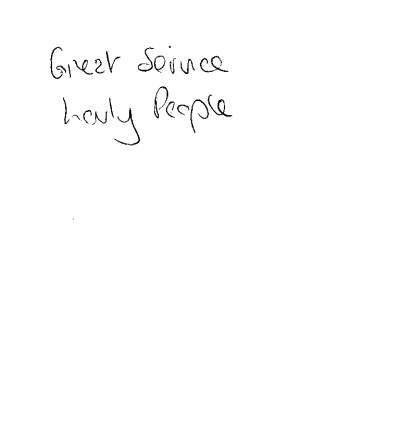 Great Service
Lovely People